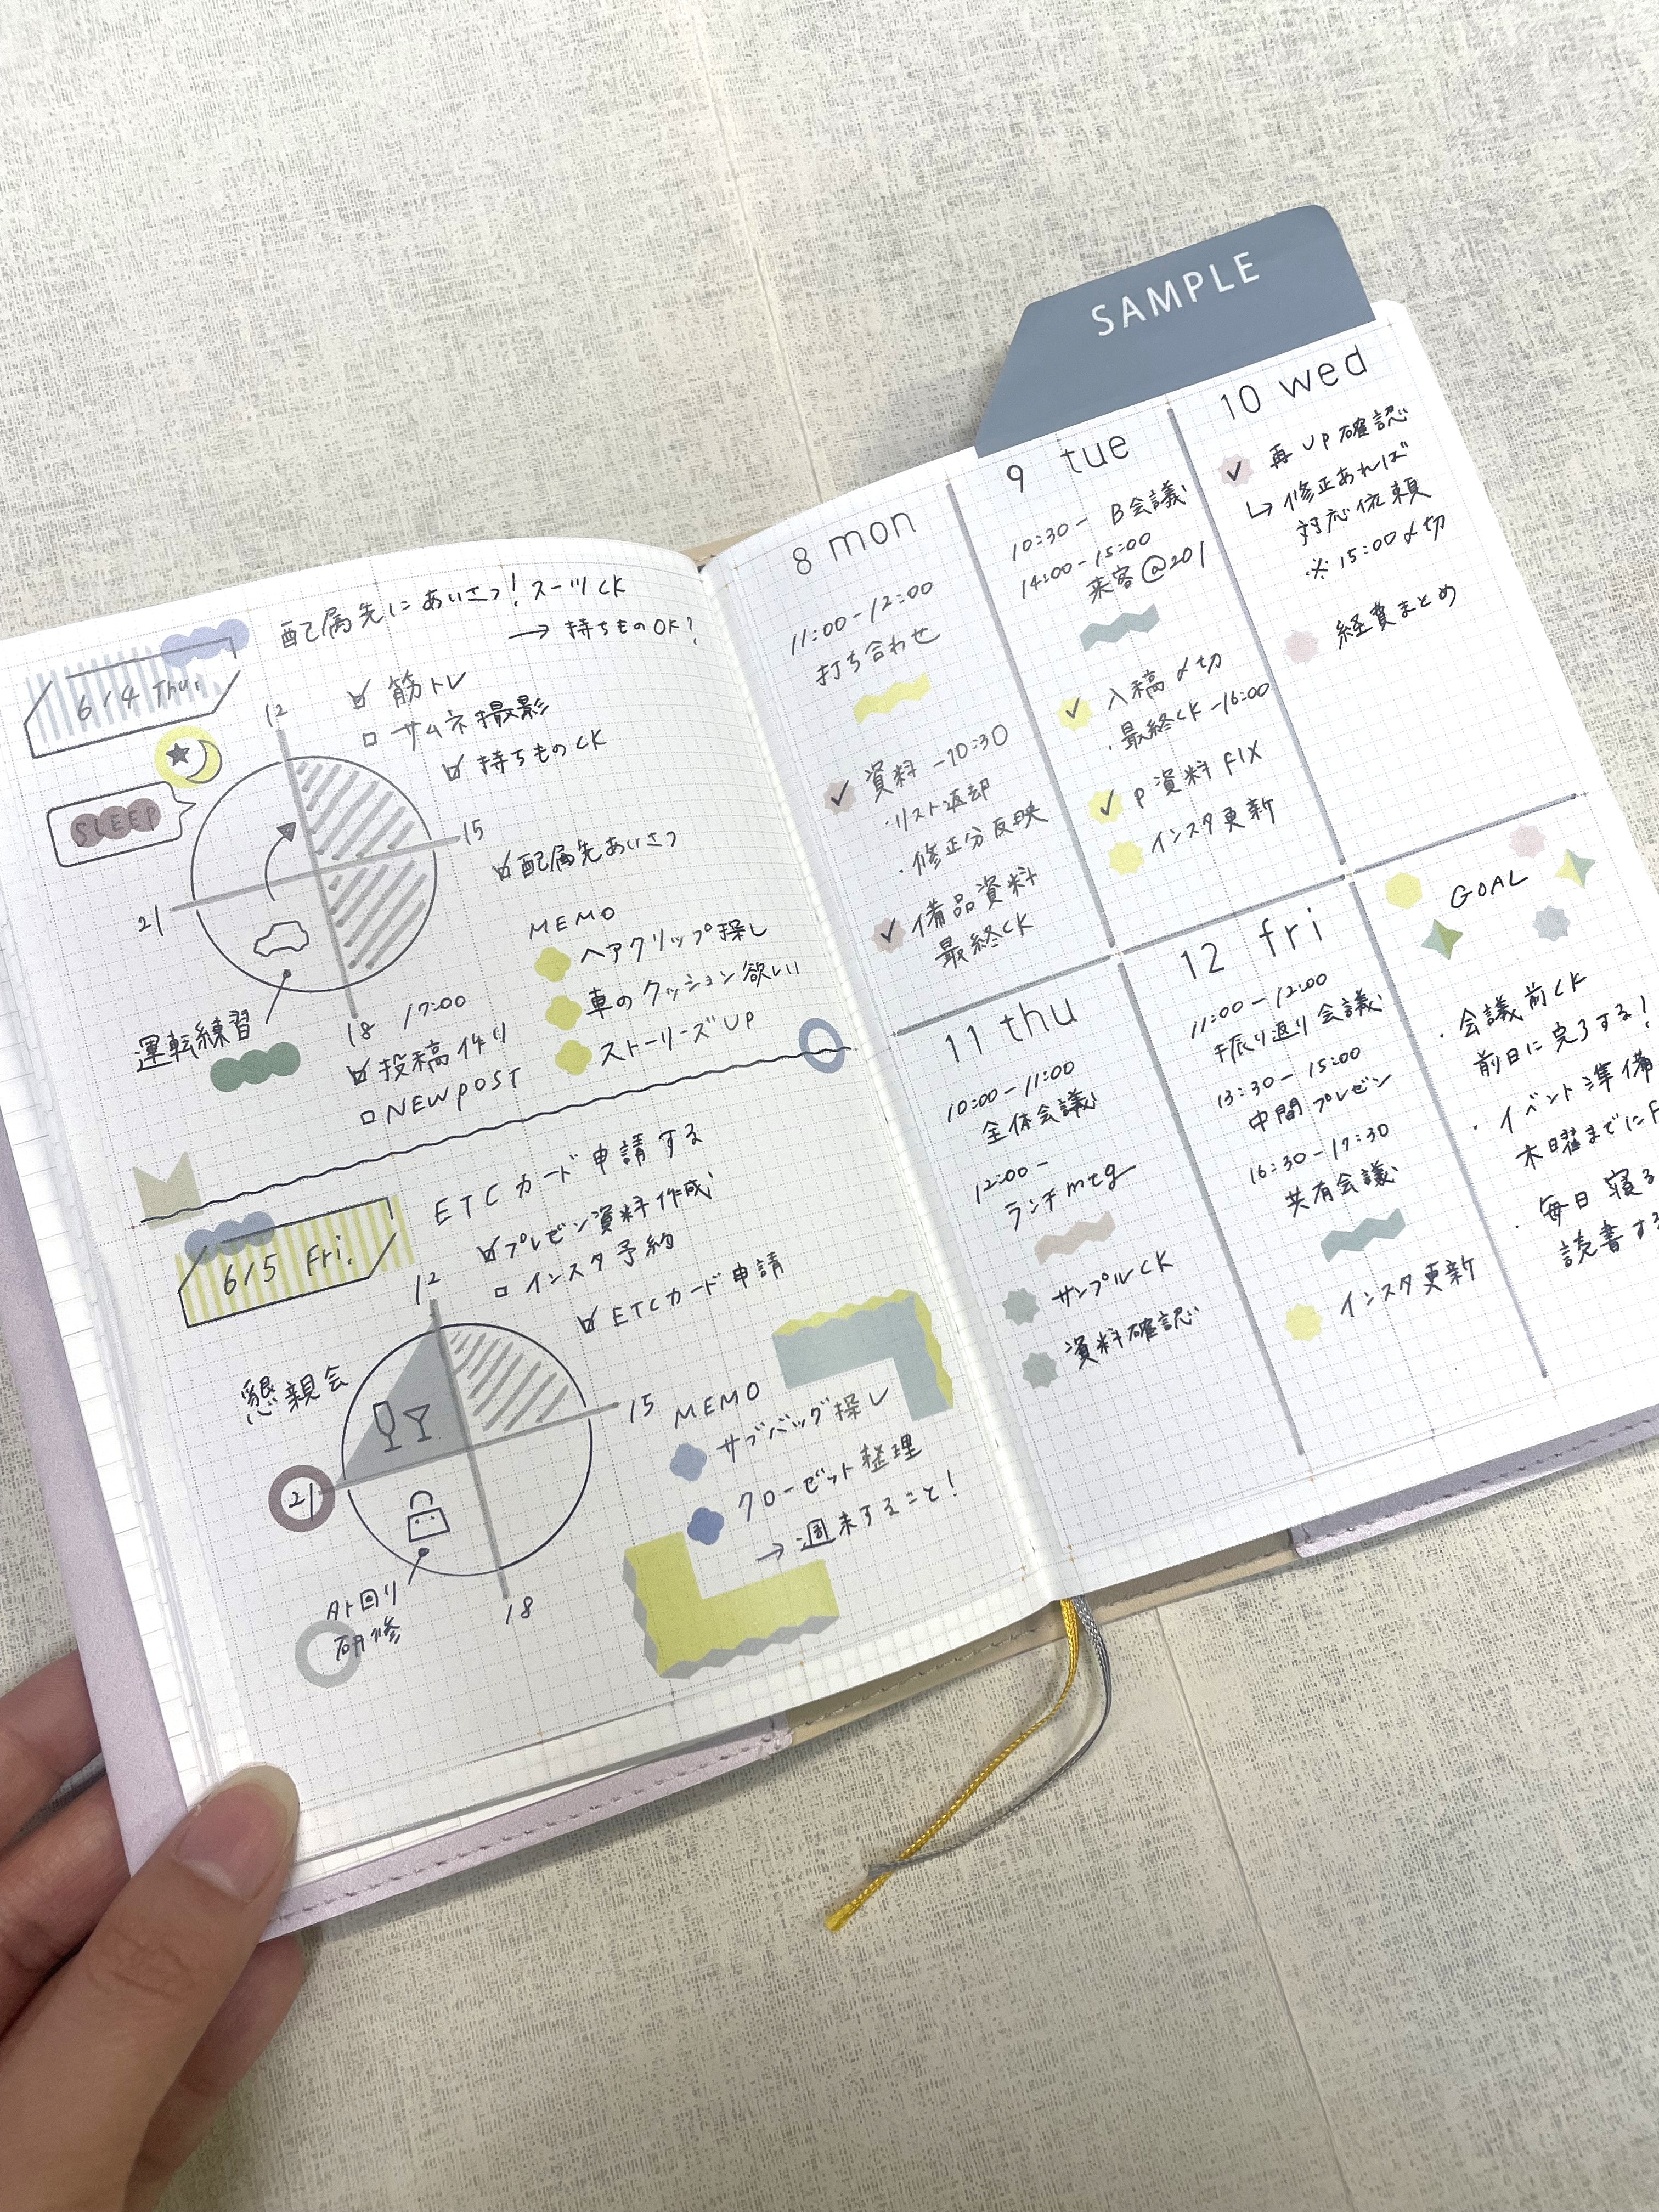 SAMPLE
6/4 Thu.
配属先にあいさつ! スーツCK
→ 持ちものOK?
筋トレ
サムネ撮影
持ちものCK
SLEEP
12
15
18
21
配属先あいさつ
MEMO
ヘアクリップ探し
車のクッション欲しい
ストーリーズUP
運転練習
17:00
投稿作り
NEW POST
6/5 Fri.
ETCカード申請する
プレゼン資料作成
インスタ予約
ETCカード申請
12
15
18
21
懇親会
外回り
研修
MEMO
サブバッグ探し
クローゼット整理
→ 週末すること!
8 mon
11:00-12:00
打ち合わせ
資料 -10:30
・リスト返却
・修正分反映
備品資料
最終CK
9 tue
10:30- B会議
14:00-15:00
来客@201
入稿〆切
・最終CK -16:00
P資料FIX
インスタ更新
10 wed
再UP確認
↳修正あれば
対応依頼
※15:00〆切
経費まとめ
11 thu
10:00-11:00
全体会議
12:00-
ランチmtg
サンプルCK
資料確認
12 fri
11:00-12:00
振り返り会議
13:30-15:00
中間プレゼン
16:30-17:30
共有会議
インスタ更新
GOAL
・会議前CK
前日に完了する!
・イベント準備
木曜までにF
・毎日寝る
読書する